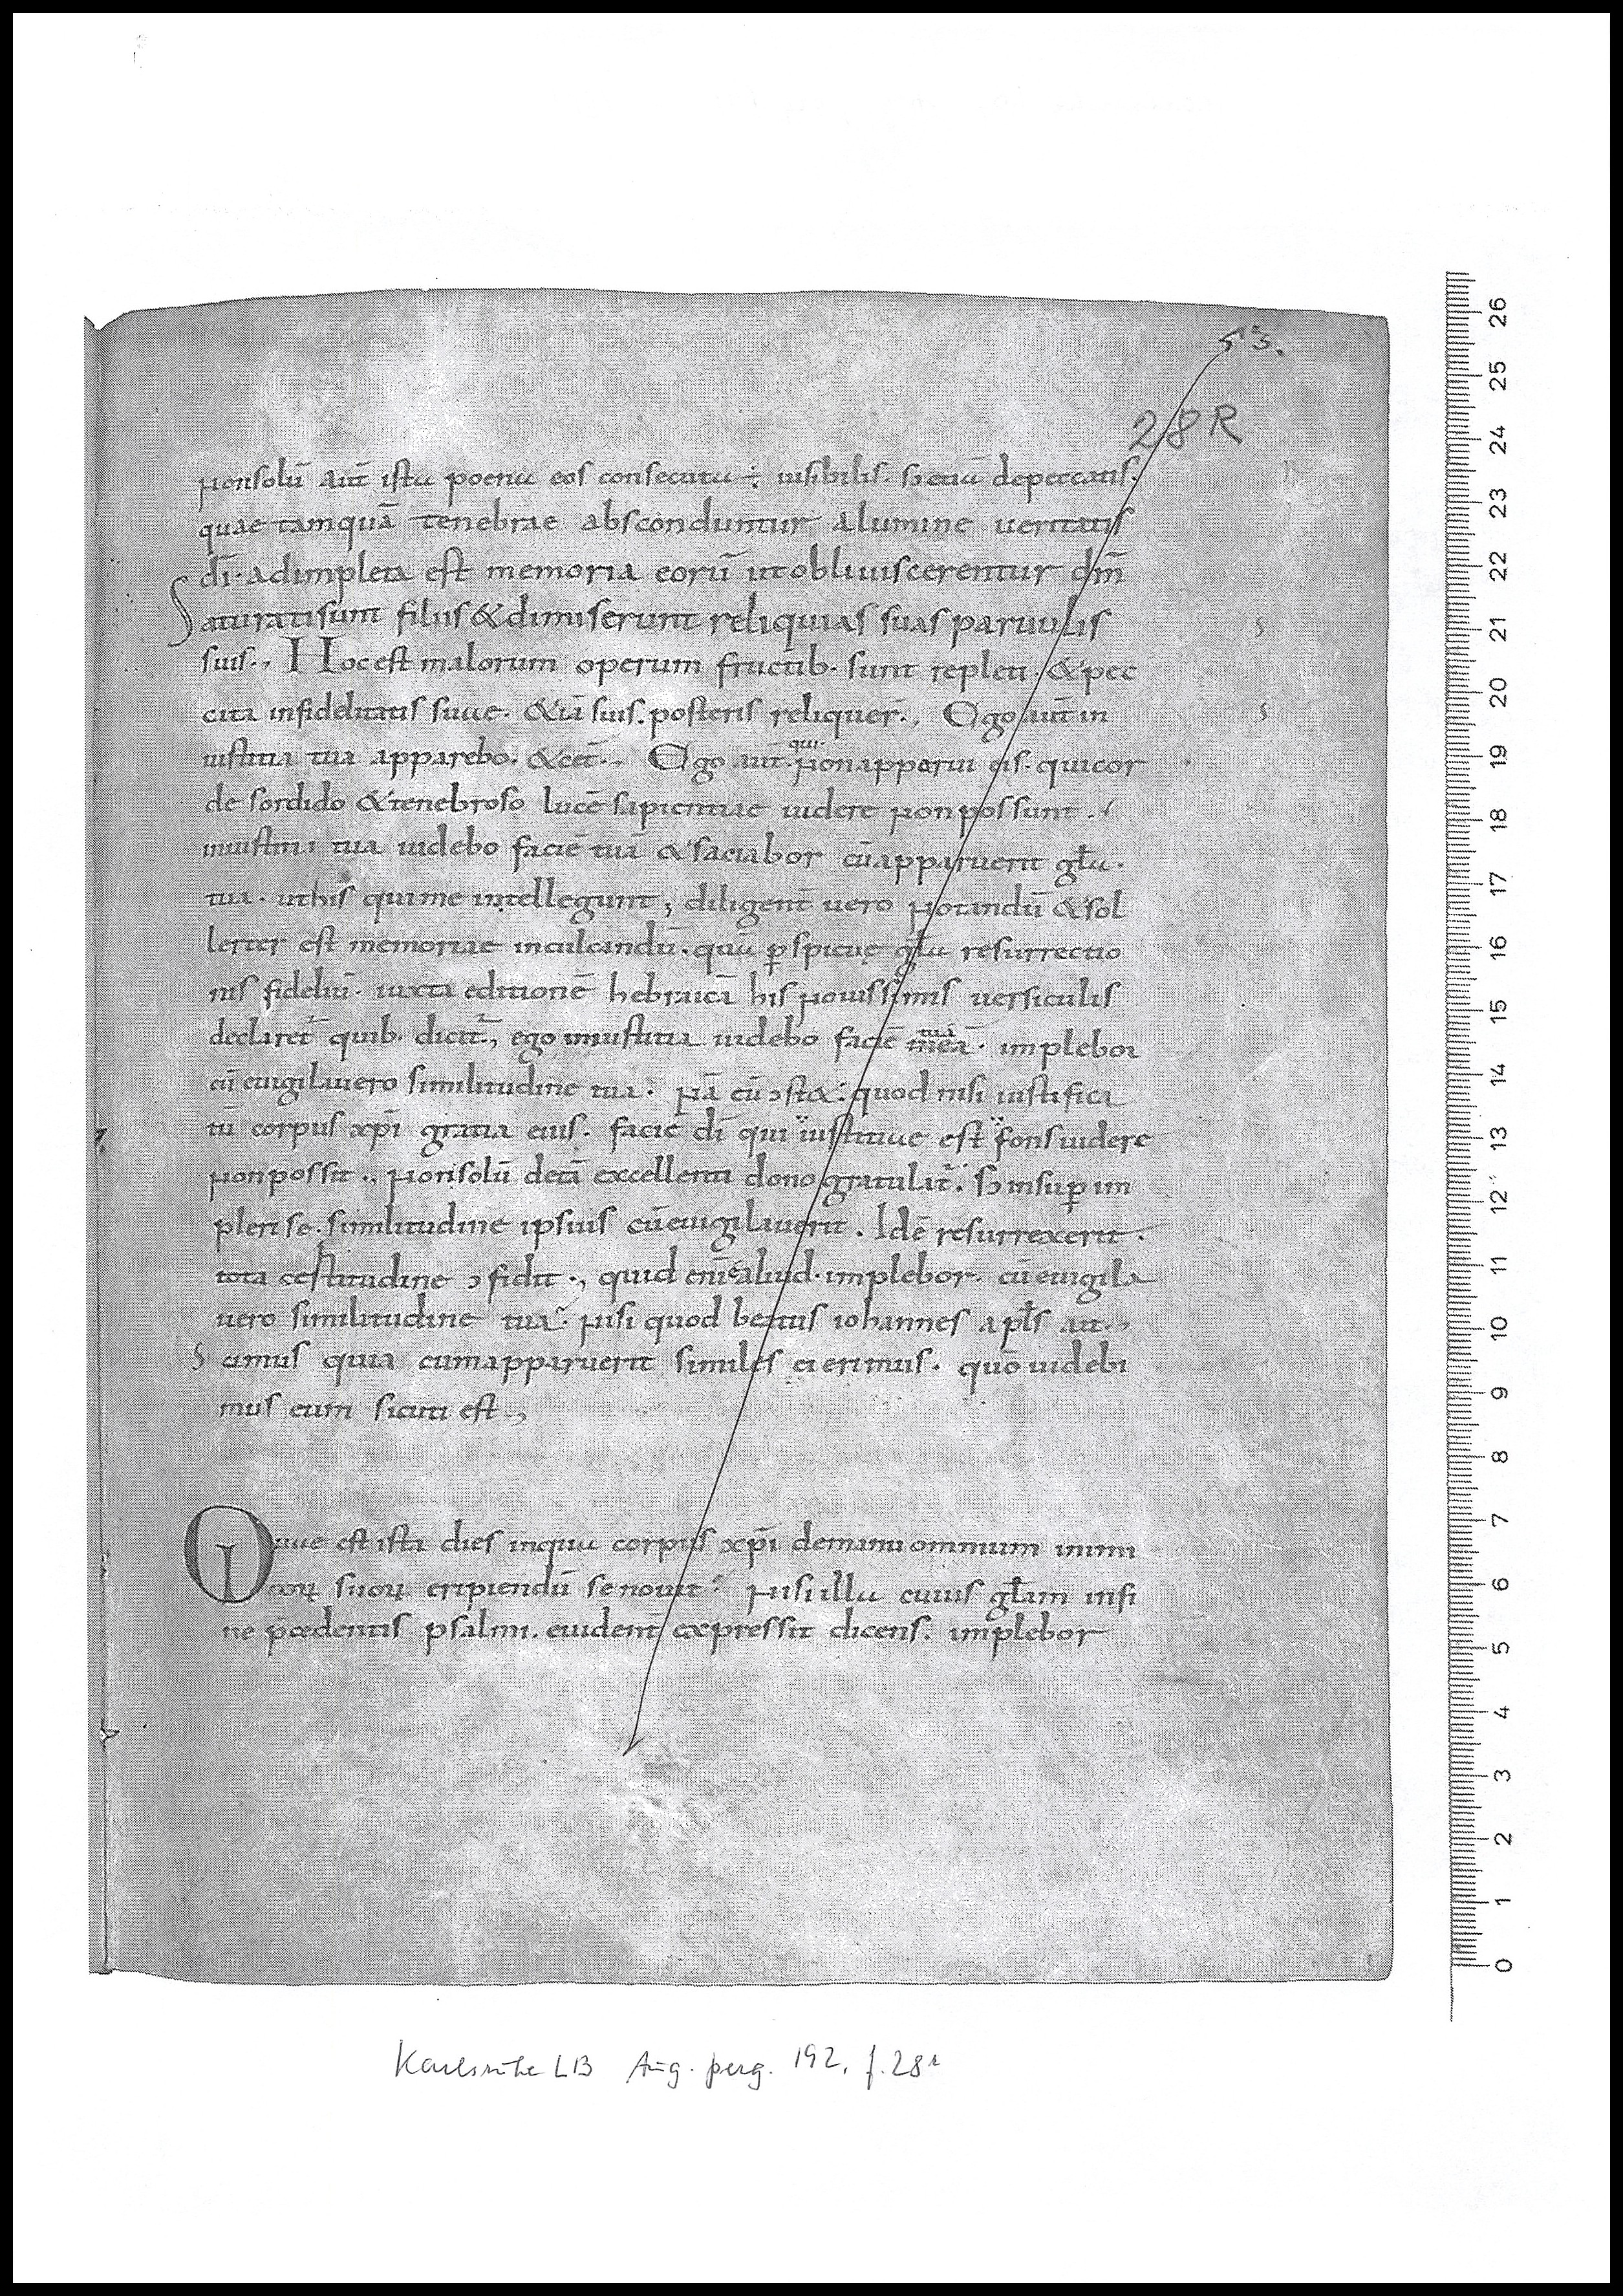 53.
28R
nonsolū aut̄ ista poena eos consecuta ÷ uisibilis. s; etiā depeccatis.
quae tamquā tenebrae absconduntur alumine ueritatis
dī. adimpleta est memoria eorū utobliuiscerentur dm̄
Saturatisunt filiis &dimiserunt reliquias suas paruulis
suis., Hocest malorum operum fructib. sunt repleti. &pec
cata infidelitatis suae. &iā suis. posteris reliquer̄., Ego aut̄ in
iustitia tua apparebo. &cet̄., Ego aut̄. qui. nonapparui eis. quicor
de sordido &tenebroso lucē sapientiae uidere nonpossunt.
iniustitia tua uidebo faciē tuā &saciabor cūapparuerit gła.
tua. uthis quime intellegunt, diligent̄ uero notandū &sol
lerter est memoriae inculcandū. quā ꝑspicuę gła resurrectio
nis fideliū. iuxta editionē hebraicā his nouissimis uersiculis
declaret̄ quib. dicit̄., ego iniustitia uidebo faciē tuā meā. implebor
cū euigilauero similitudine tua. nā cū ɔst&. quod nisi iustifica
tū corpus xp̄i gratia eius. faciē dī qui iustitiae est fons uidere
nonpossit., nonsolū detā excellenti dono gratulat̄. s; insuꝑ im
pleri se. similitudine ipsius cūeuigilauerit. Idē resurrexerit.
tota certitudine ɔfidit., quid enī ē aliud. implebor. cū euigila
uero similitudine tua. nisi quod beatus iohannes apłs ait.,
Scimus quia cumapparuerit similes ei erimus. quō uidebi
mus eum sicuti est.,
Quae est ista dies inqua corpus xp̄i demanu omnium inimi
coꝝ suoꝝ eripiendū se nouit? nisi illa cuius głam infi
ne p̄cedentis psalmi. euident̄ expressit dicens. implebor
Karlsruhe LB Aug. perg. 192, f. 28r
26
25
24
23
22
21
20
19
18
17
16
15
14
13
12
11
10
9
8
7
6
5
4
3
2
1
0